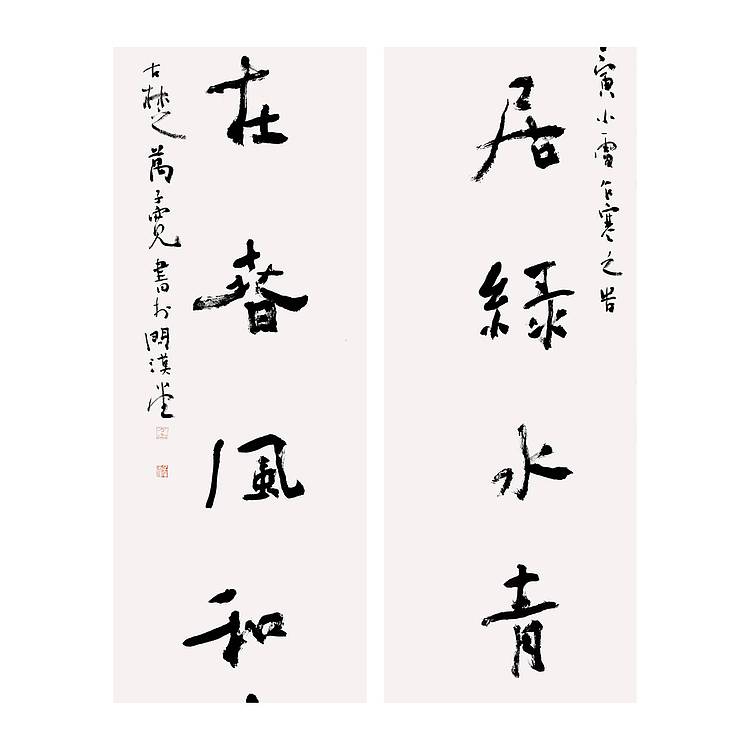 寅小雪乍寒之峕
居綠水青
在春風和
古楚萬子書於漢堂